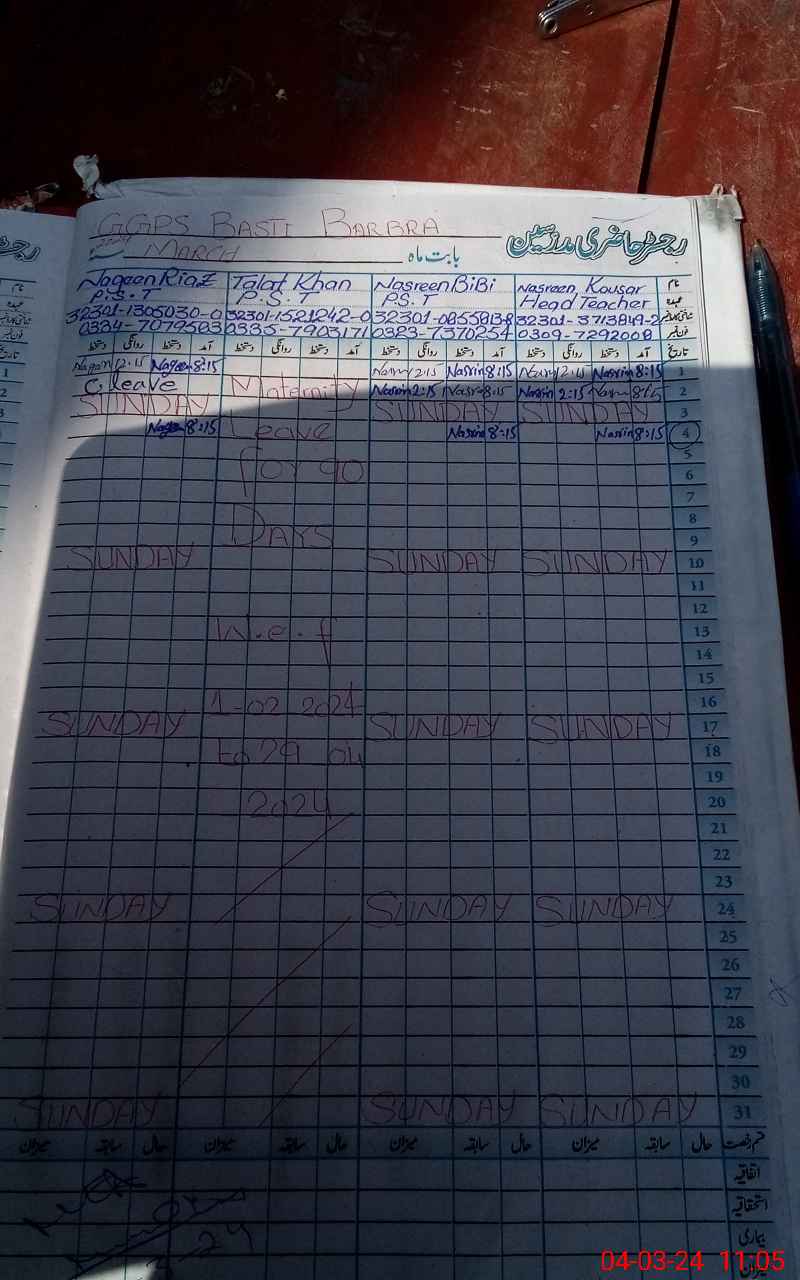 GGPS BASTI BARBRA
رجسٹر حاضری مدرسین
2024 MARCH بابت ماہ
Naqeen Riaz Talat Khan Nasreen BiBi Nasreen Kousar نام
P.S.T P.S.T PS.T Head Teacher عہدہ
32301-1305030-0 32301-1521242-0
0334-7079503 0335-7903171 0323-7370254 0309-7292008 فون نمبر
دستخط روانگی دستخط آمد دستخط روانگی دستخط آمد دستخط روانگی دستخط آمد دستخط روانگی دستخط آمد تاریخ
12:15 Naqeen 8:15 12:15 Nasrin 8:15 12:15 Nasrin 8:15 1
C. leave Maternity Nasrin 2:15 8:15 Nasrin 2:15 8:15 2
SUNDAY SUNDAY SUNDAY 3
8:15 Leave Nasrin 8:15 Nasrin 8:15 4
5
for 90 6
7
8
Days 9
SUNDAY SUNDAY SUNDAY 10
11
12
W.e.f 13
14
15
1-02 2024 16
SUNDAY SUNDAY SUNDAY 17
to 29 04 18
19
2024 20
21
22
23
SUNDAY SUNDAY SUNDAY 24
25
26
27
28
29
30
SUNDAY SUNDAY SUNDAY 31
میزان سابقہ حال میزان سابقہ حال میزان سابقہ حال میزان سابقہ حال قسم رخصت
اتفاقیہ
استحقاقیہ
بیماری
میزان
04-03-24 11:05